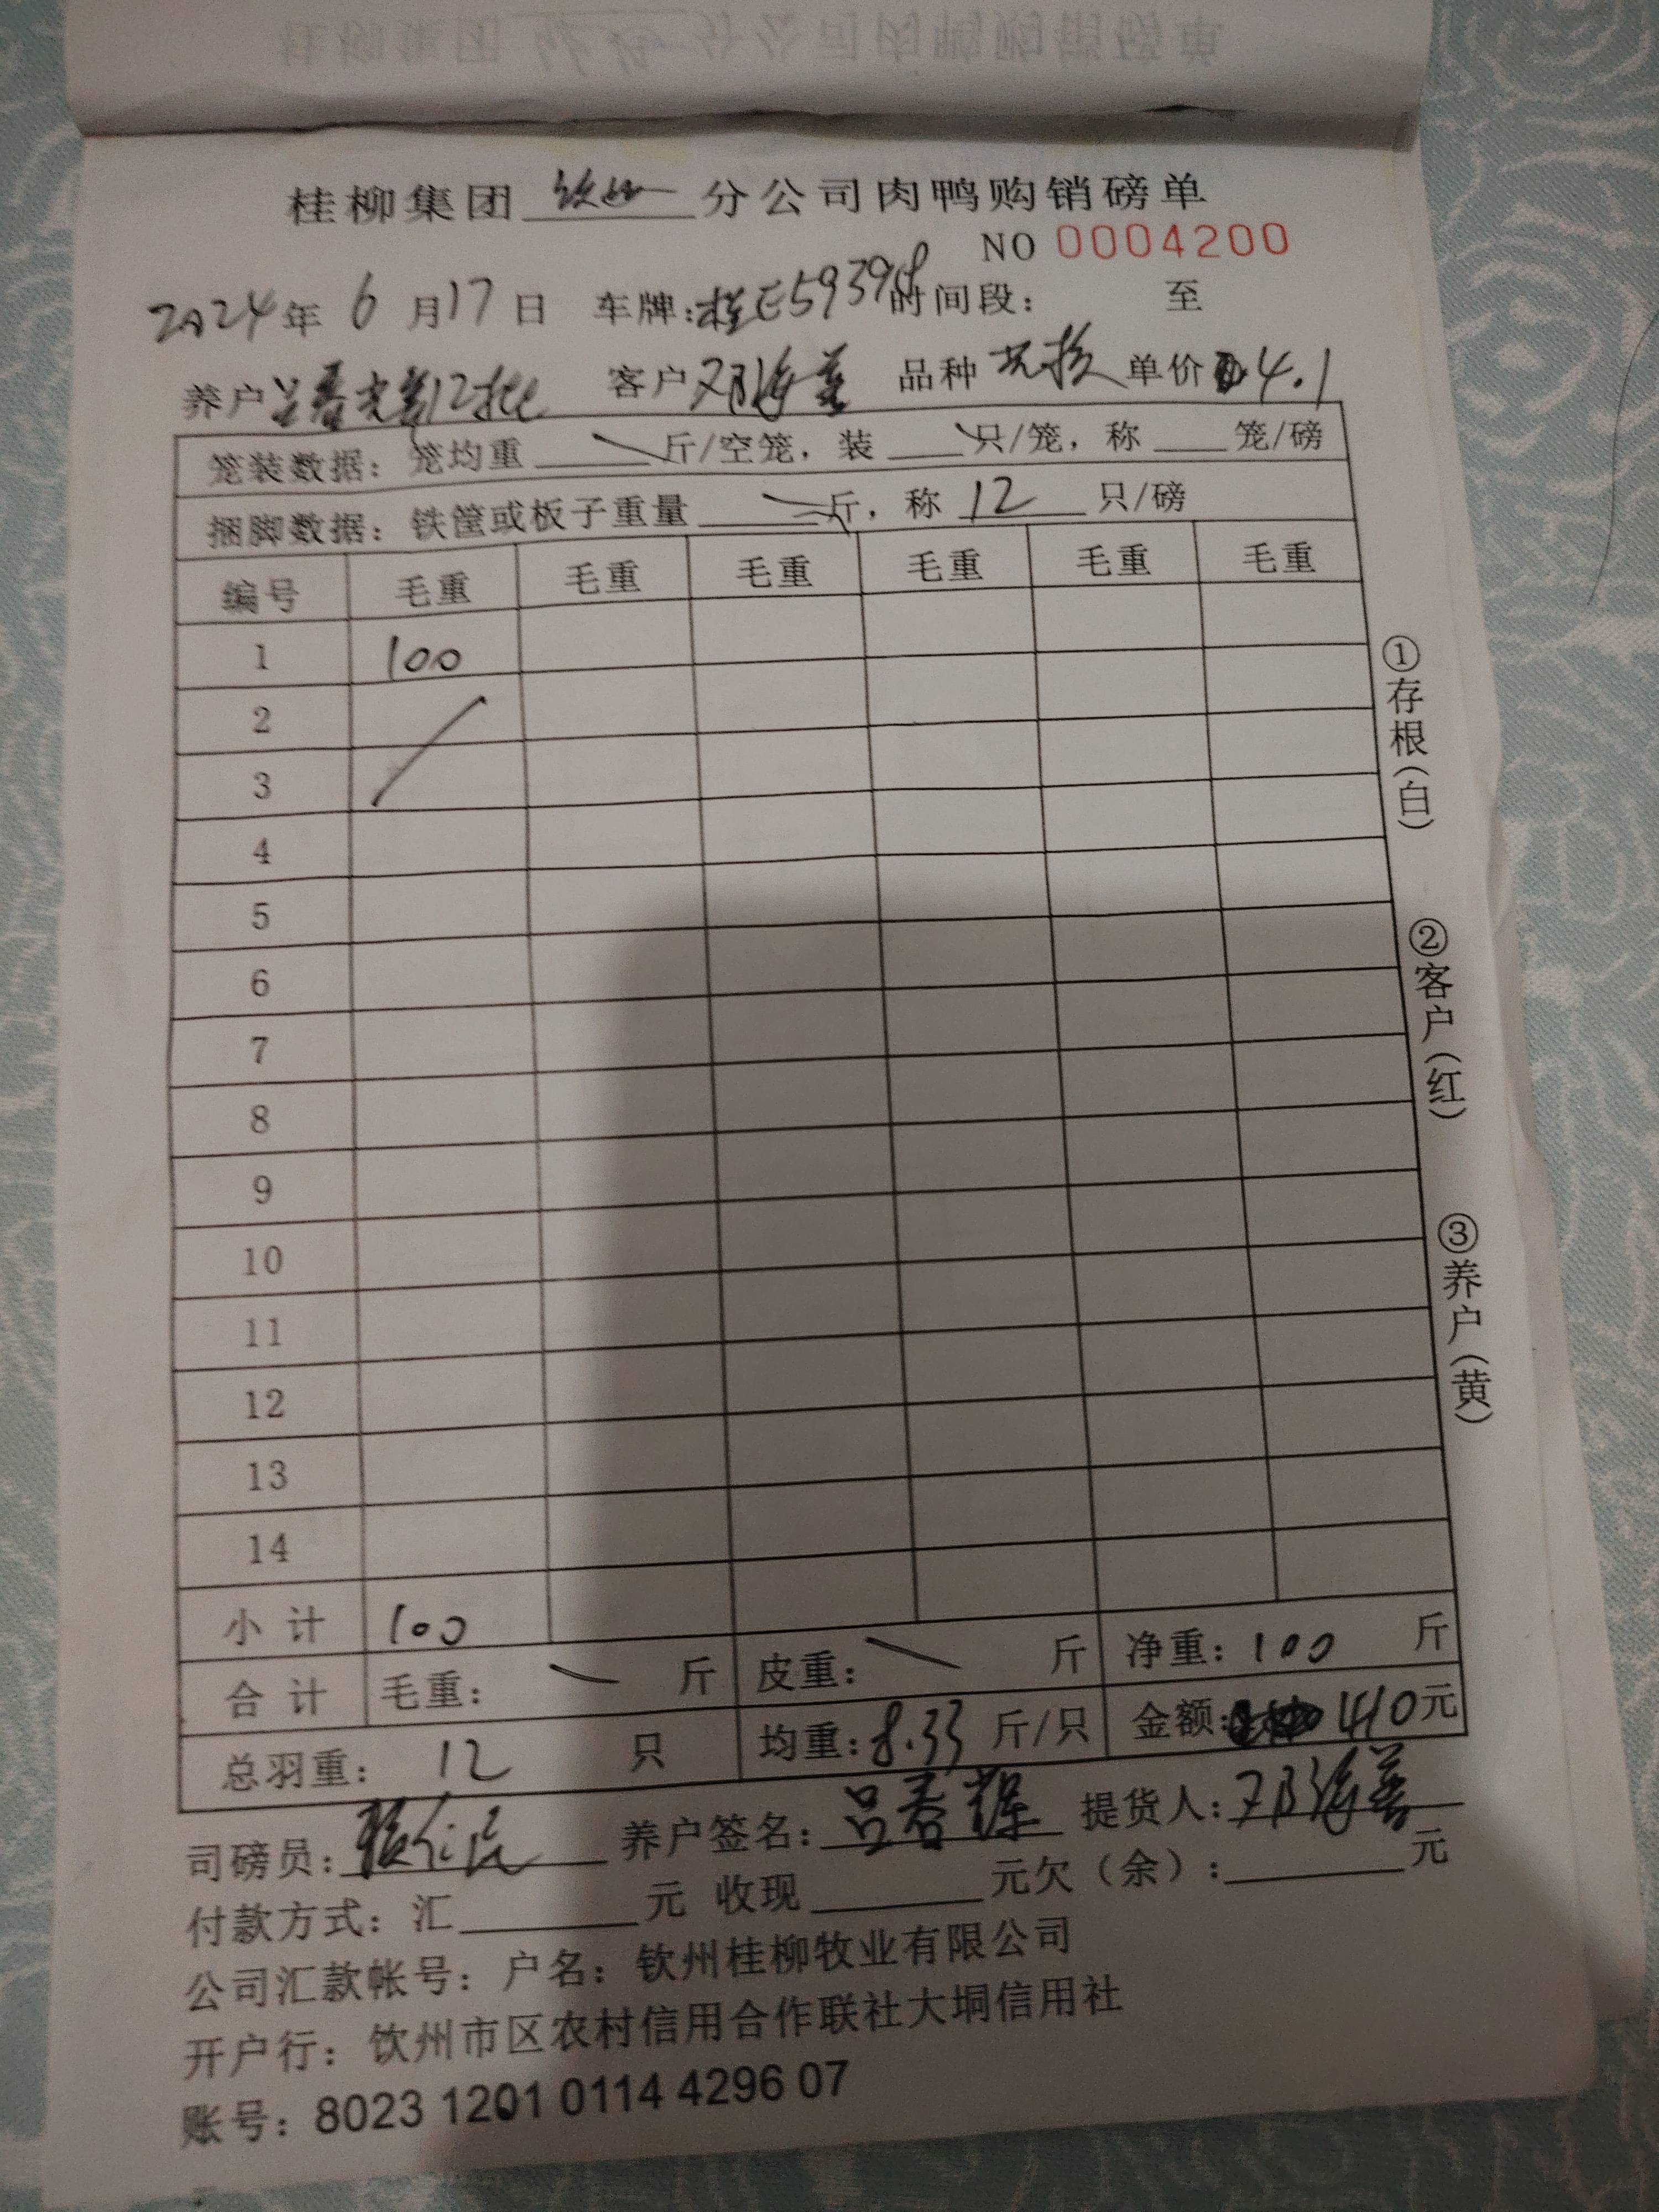 桂柳集团 钦州 分公司肉鸭购销磅单
NO 0004200
2024年 6月17日 车牌:桂E5939 时间段: 至
养户 吕春 第12批 客户 邓海善 品种 单价 4.1
笼装数据:笼均重 斤/空笼,装 只/笼,称 笼/磅
捆脚数据:铁筐或板子重量 斤,称 12 只/磅
编号 毛重 毛重 毛重 毛重 毛重 毛重
1 100
2
3
4
5
6
7
8
9
10
11
12
13
14
小计 100
合计 毛重: 斤 皮重: 斤 净重:100 斤
总羽重: 12 只 均重:8.33 斤/只 金额: 410元
司磅员: 养户签名:吕春 提货人:邓海善
付款方式:汇 元 收现 元欠(余): 元
公司汇款帐号:户名:钦州桂柳牧业有限公司
开户行:钦州市区农村信用合作联社大垌信用社
账号:8023 1201 0114 4296 07
①存根(白)
②客户(红)
③养户(黄)